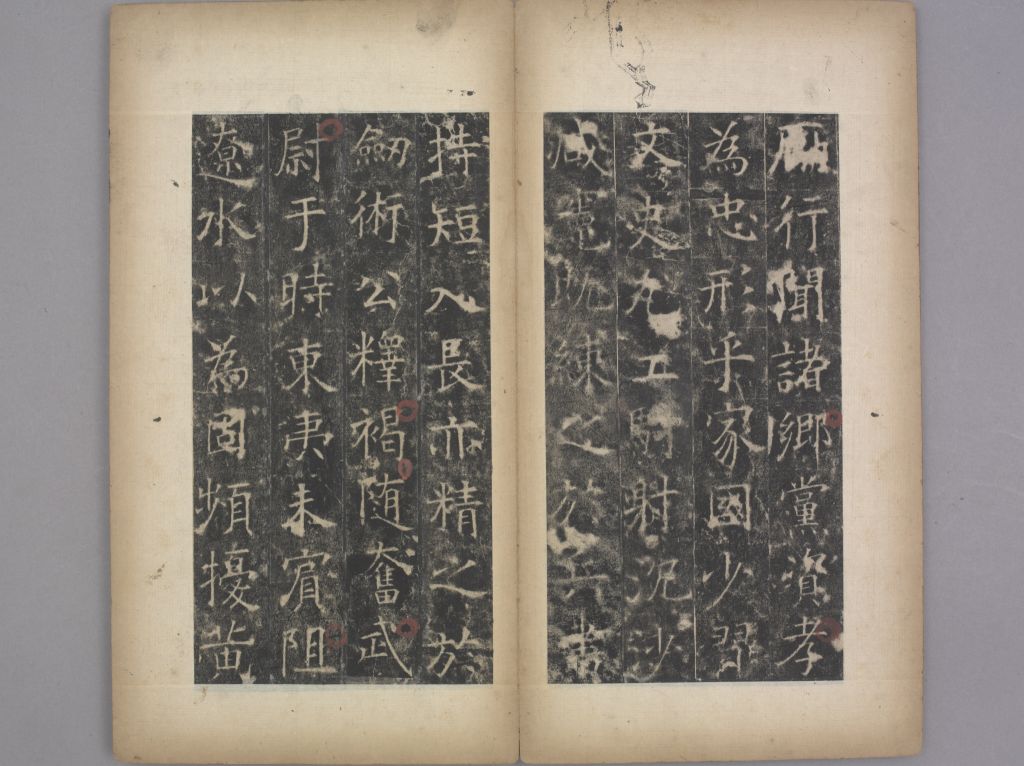 厲行聞諸鄉黨資孝
為忠形乎家國少習
文史九五射泥沙
咸既練之於兵書
持短入長亦精之於
劒術公釋褐随奮武
尉于時東夷未賓阻
遼水以為固頻擾黄